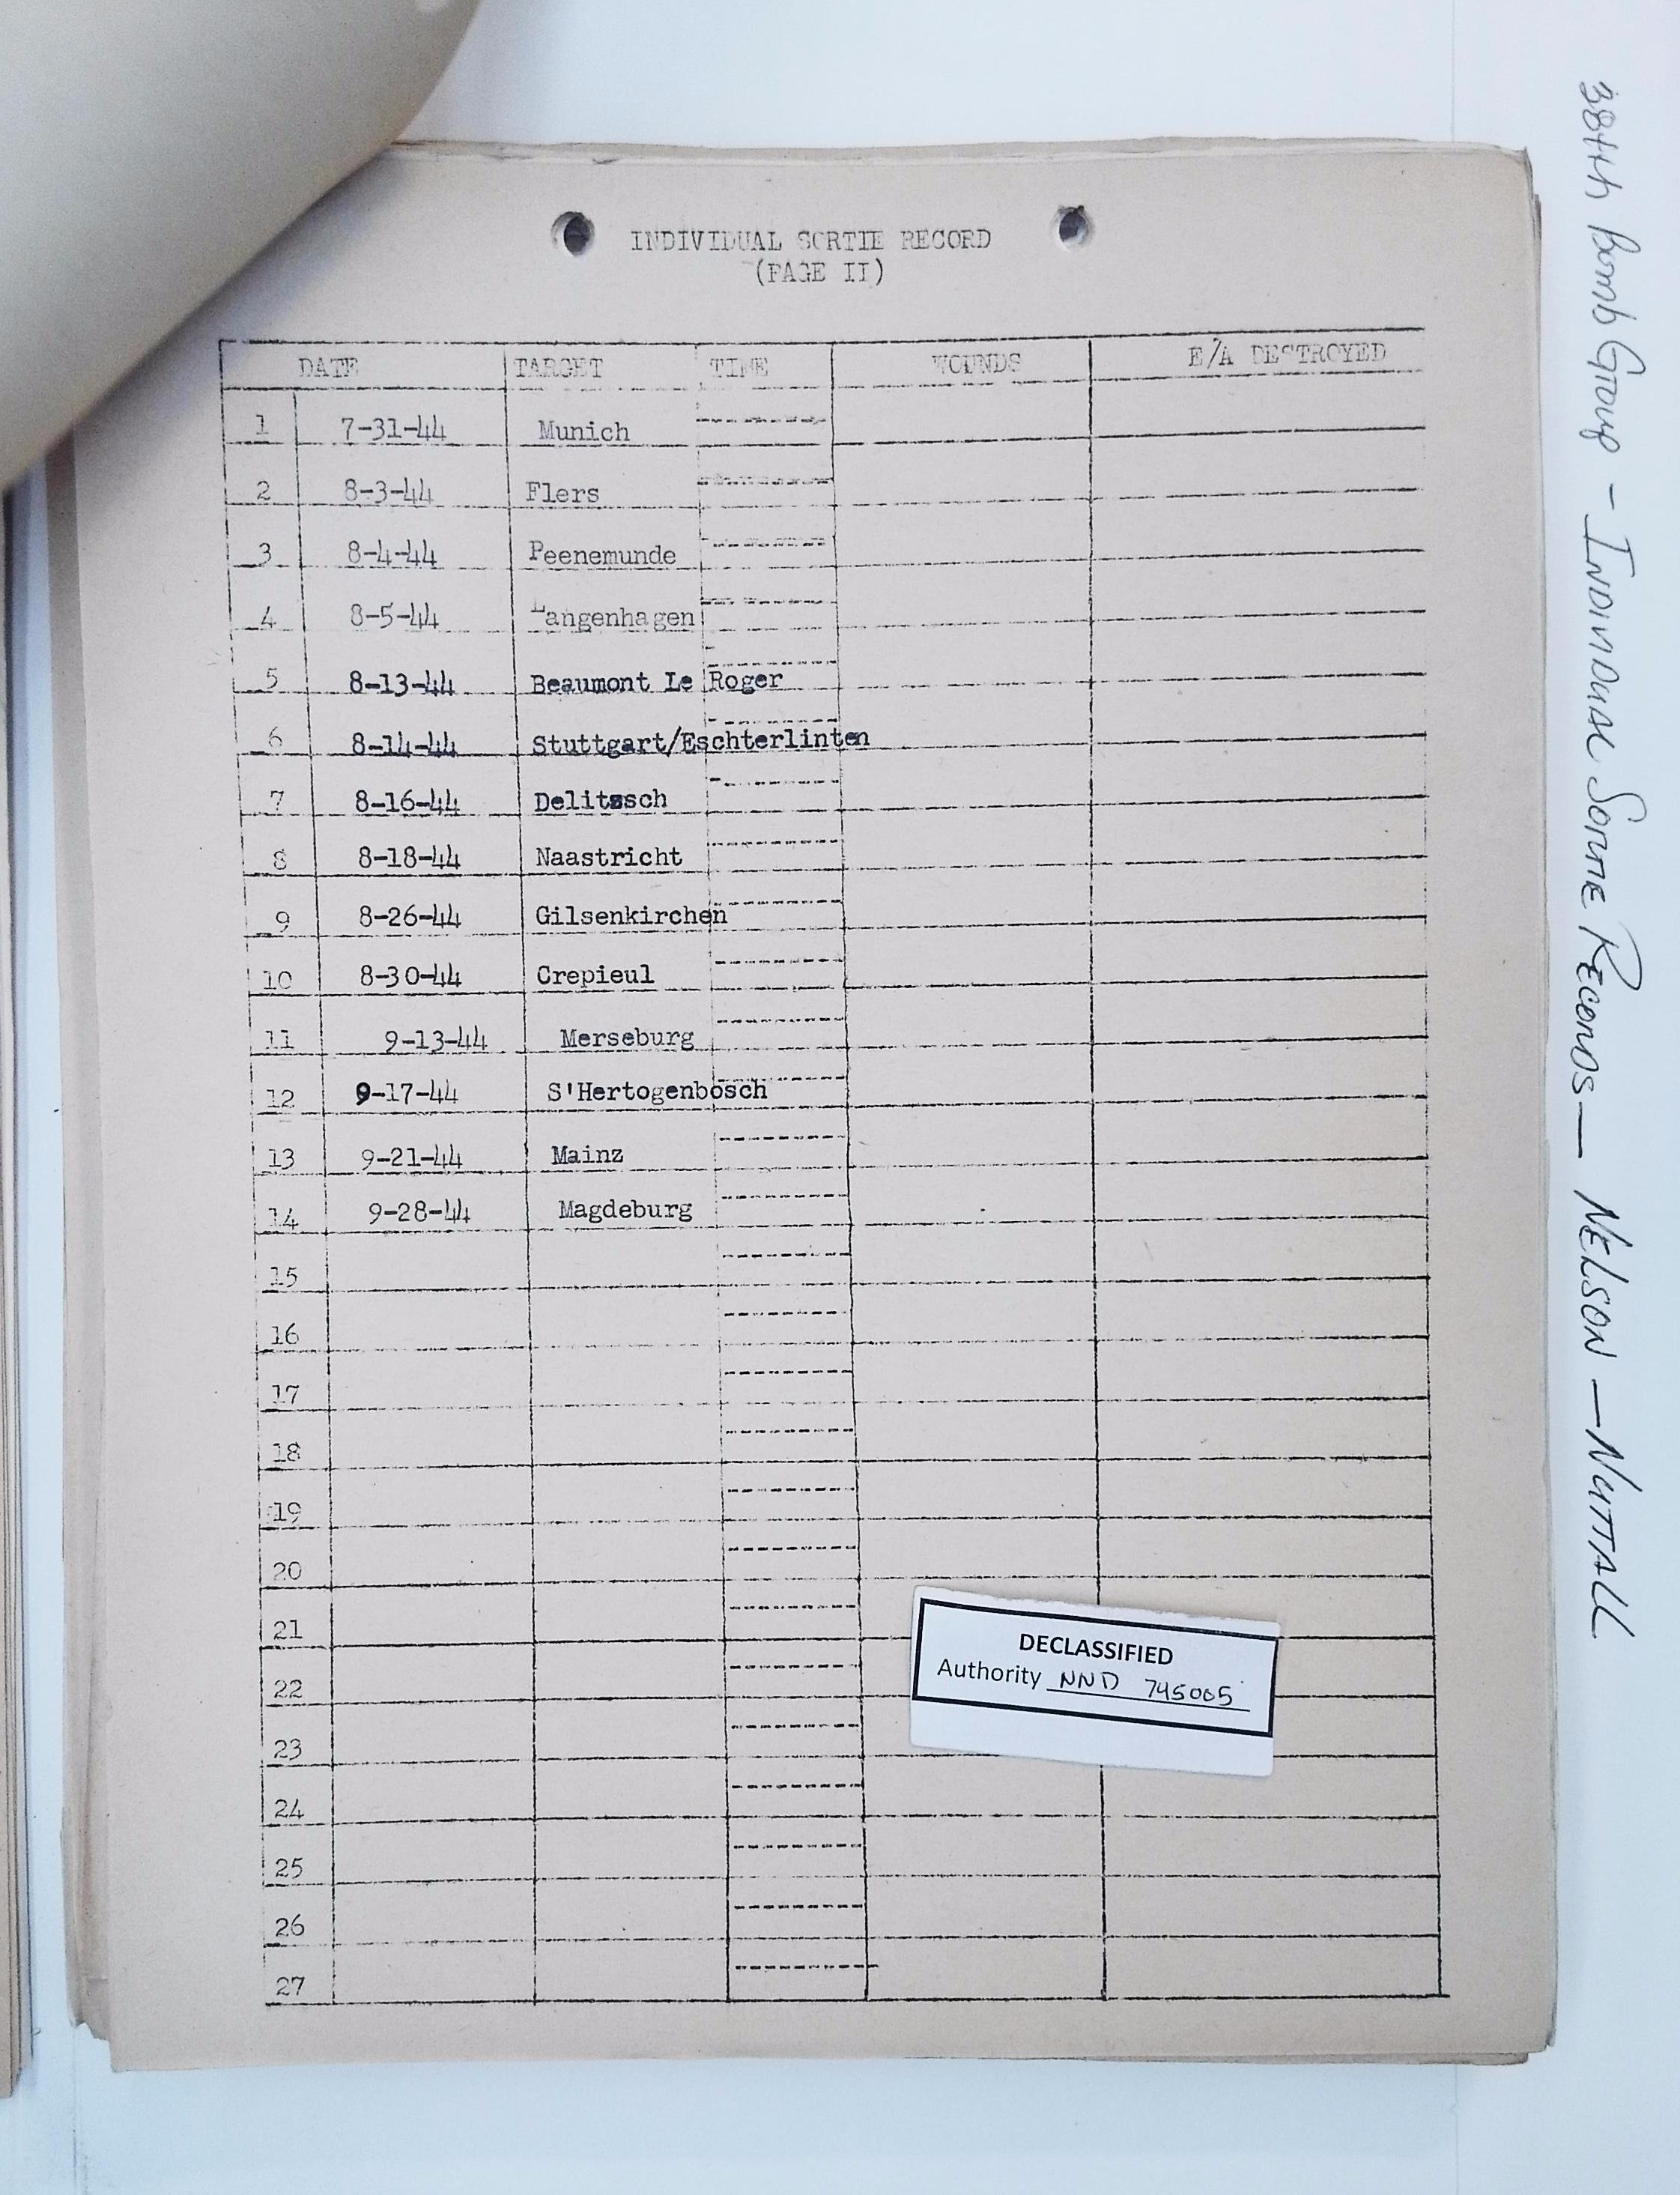 INDIVIDUAL SORTIE RECORD
(PAGE II)
DATE TARGET TIME WOUNDS E/A DESTROYED
1 7-31-44 Munich
2 8-3-44 Flers
3 8-4-44 Peenemunde
4 8-5-44 Langenhagen
5 8-13-44 Beaumont Le Roger
6 8-14-44 Stuttgart/Eschterlinten
7 8-16-44 Delitzsch
8 8-18-44 Naastricht
9 8-26-44 Gilsenkirchen
10 8-30-44 Crepieul
11 9-13-44 Merseburg
12 9-17-44 S'Hertogenbosch
13 9-21-44 Mainz
14 9-28-44 Magdeburg
15
16
17
18
19
20
21
22
23
24
25
26
27
DECLASSIFIED
Authority NND 745005
38th Bomb Group - INDIVIDUAL SORTIE RECORDS — NELSON — NUTTALL